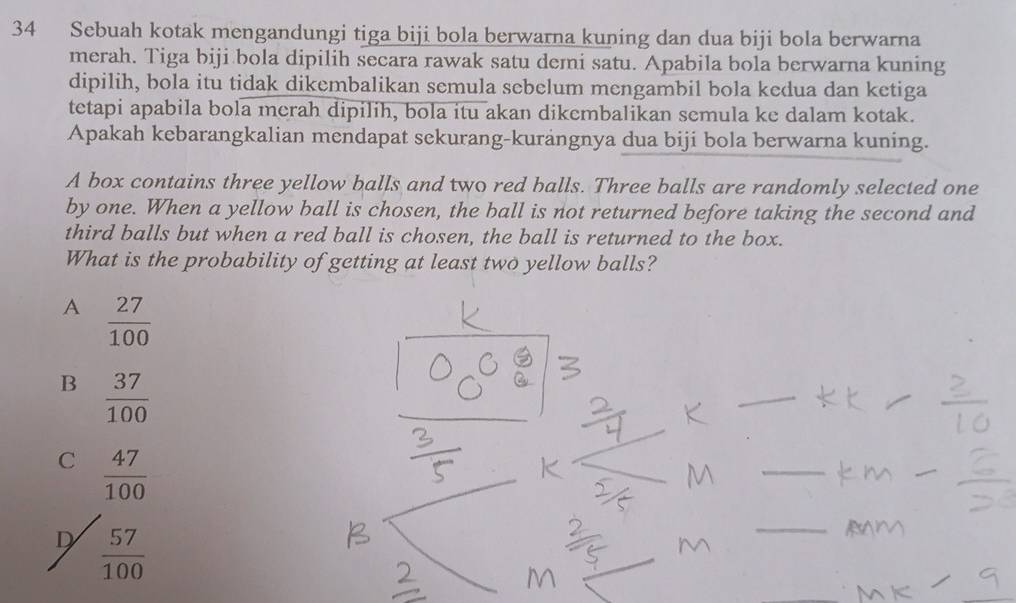 34 Sebuah kotak mengandungi tiga biji bola berwarna kuning dan dua biji bola berwarna
merah. Tiga biji bola dipilih secara rawak satu demi satu. Apabila bola berwarna kuning
dipilih, bola itu tidak dikembalikan semula sebelum mengambil bola kedua dan ketiga
tetapi apabila bola merah dipilih, bola itu akan dikembalikan semula ke dalam kotak.
Apakah kebarangkalian mendapat sekurang-kurangnya dua biji bola berwarna kuning.
A box contains three yellow balls and two red balls. Three balls are randomly selected one
by one. When a yellow ball is chosen, the ball is not returned before taking the second and
third balls but when a red ball is chosen, the ball is returned to the box.
What is the probability of getting at least two yellow balls?
A 27/100
B 37/100
C 47/100
D 57/100
K
3
3/5
2/4 K — KK - 3/10
K
2/5 M — KM -
B
2/5 M — MM
2/
M
MK - 9